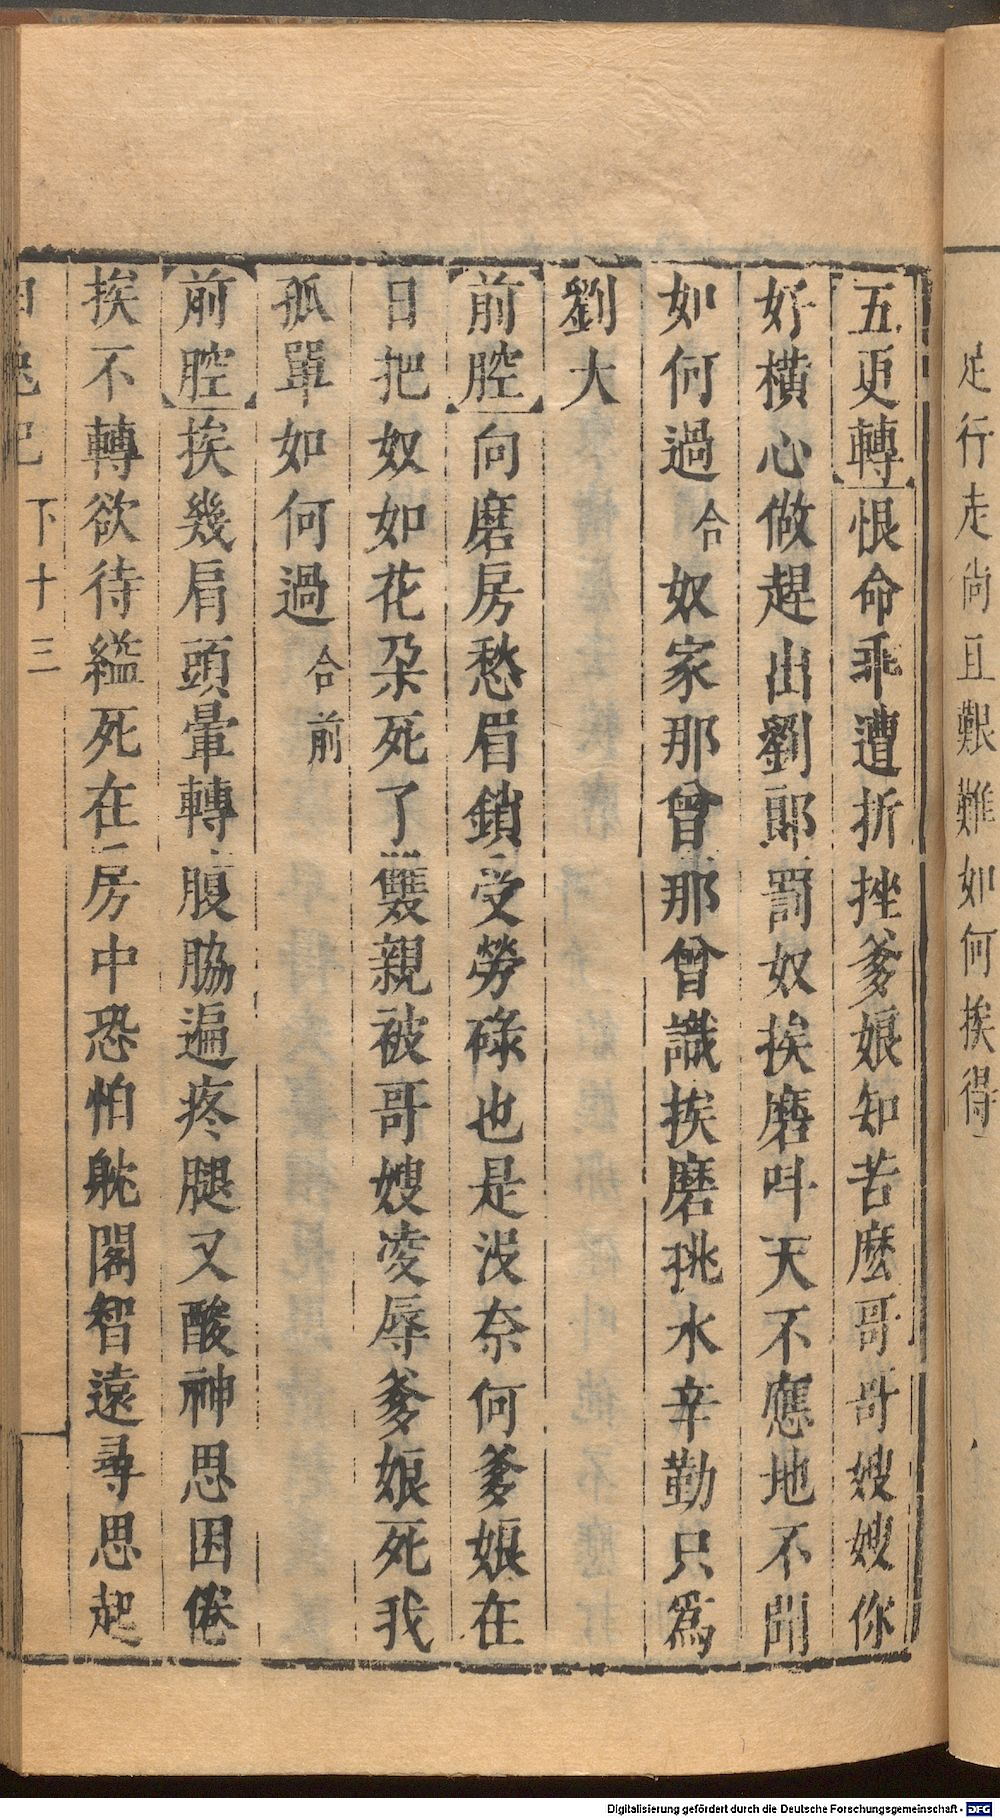 足行走尚且艱難如何挨得
五更轉恨命乖遭折挫爹娘知苦麽哥哥嫂嫂你
好橫心做趕出劉郎罰奴挨磨叫天不應地不聞
如何過合奴家那曾那曾識挨磨挑水辛勤只爲
劉大
前腔向磨房愁眉鎖受勞碌也是沒奈何爹娘在
日把奴如花朵死了雙親被哥嫂凌辱爹娘死我
孤單如何過合前
前腔挨幾肩頭暈轉腹脇遍疼腿又酸神思困倦
挨不轉欲待縊死在房中恐怕躭閣智遠尋思起
白兔記 下十三
Digitalisierung gefördert durch die Deutsche Forschungsgemeinschaft - DFG